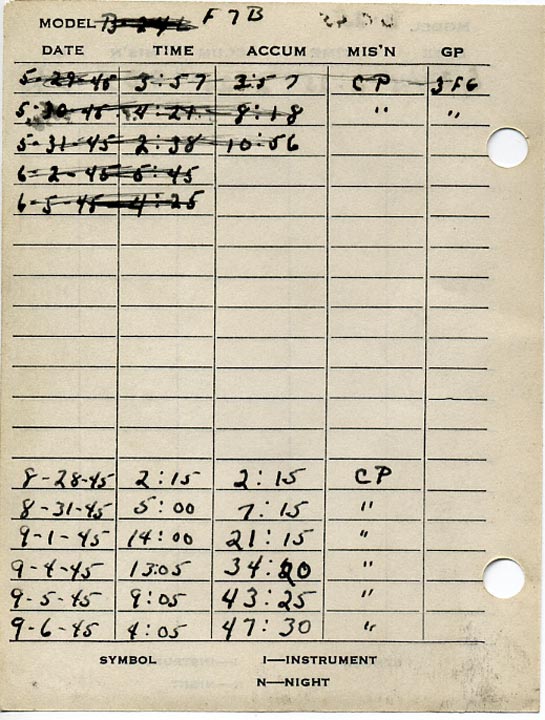 MODEL B-24L F 7 B
DATE TIME ACCUM MIS'N GP
5-29-45 3:57 3:57 CP 3FG
5-30-45 4:21 8:18 " "
5-31-45 2:38 10:56
6-2-45 5:45
6-5-45 4:25
8-28-45 2:15 2:15 CP
8-31-45 5:00 7:15 "
9-1-45 14:00 21:15 "
9-4-45 13:05 34:20 "
9-5-45 9:05 43:25 "
9-6-45 4:05 47:30 "
SYMBOL I—INSTRUMENT
N—NIGHT